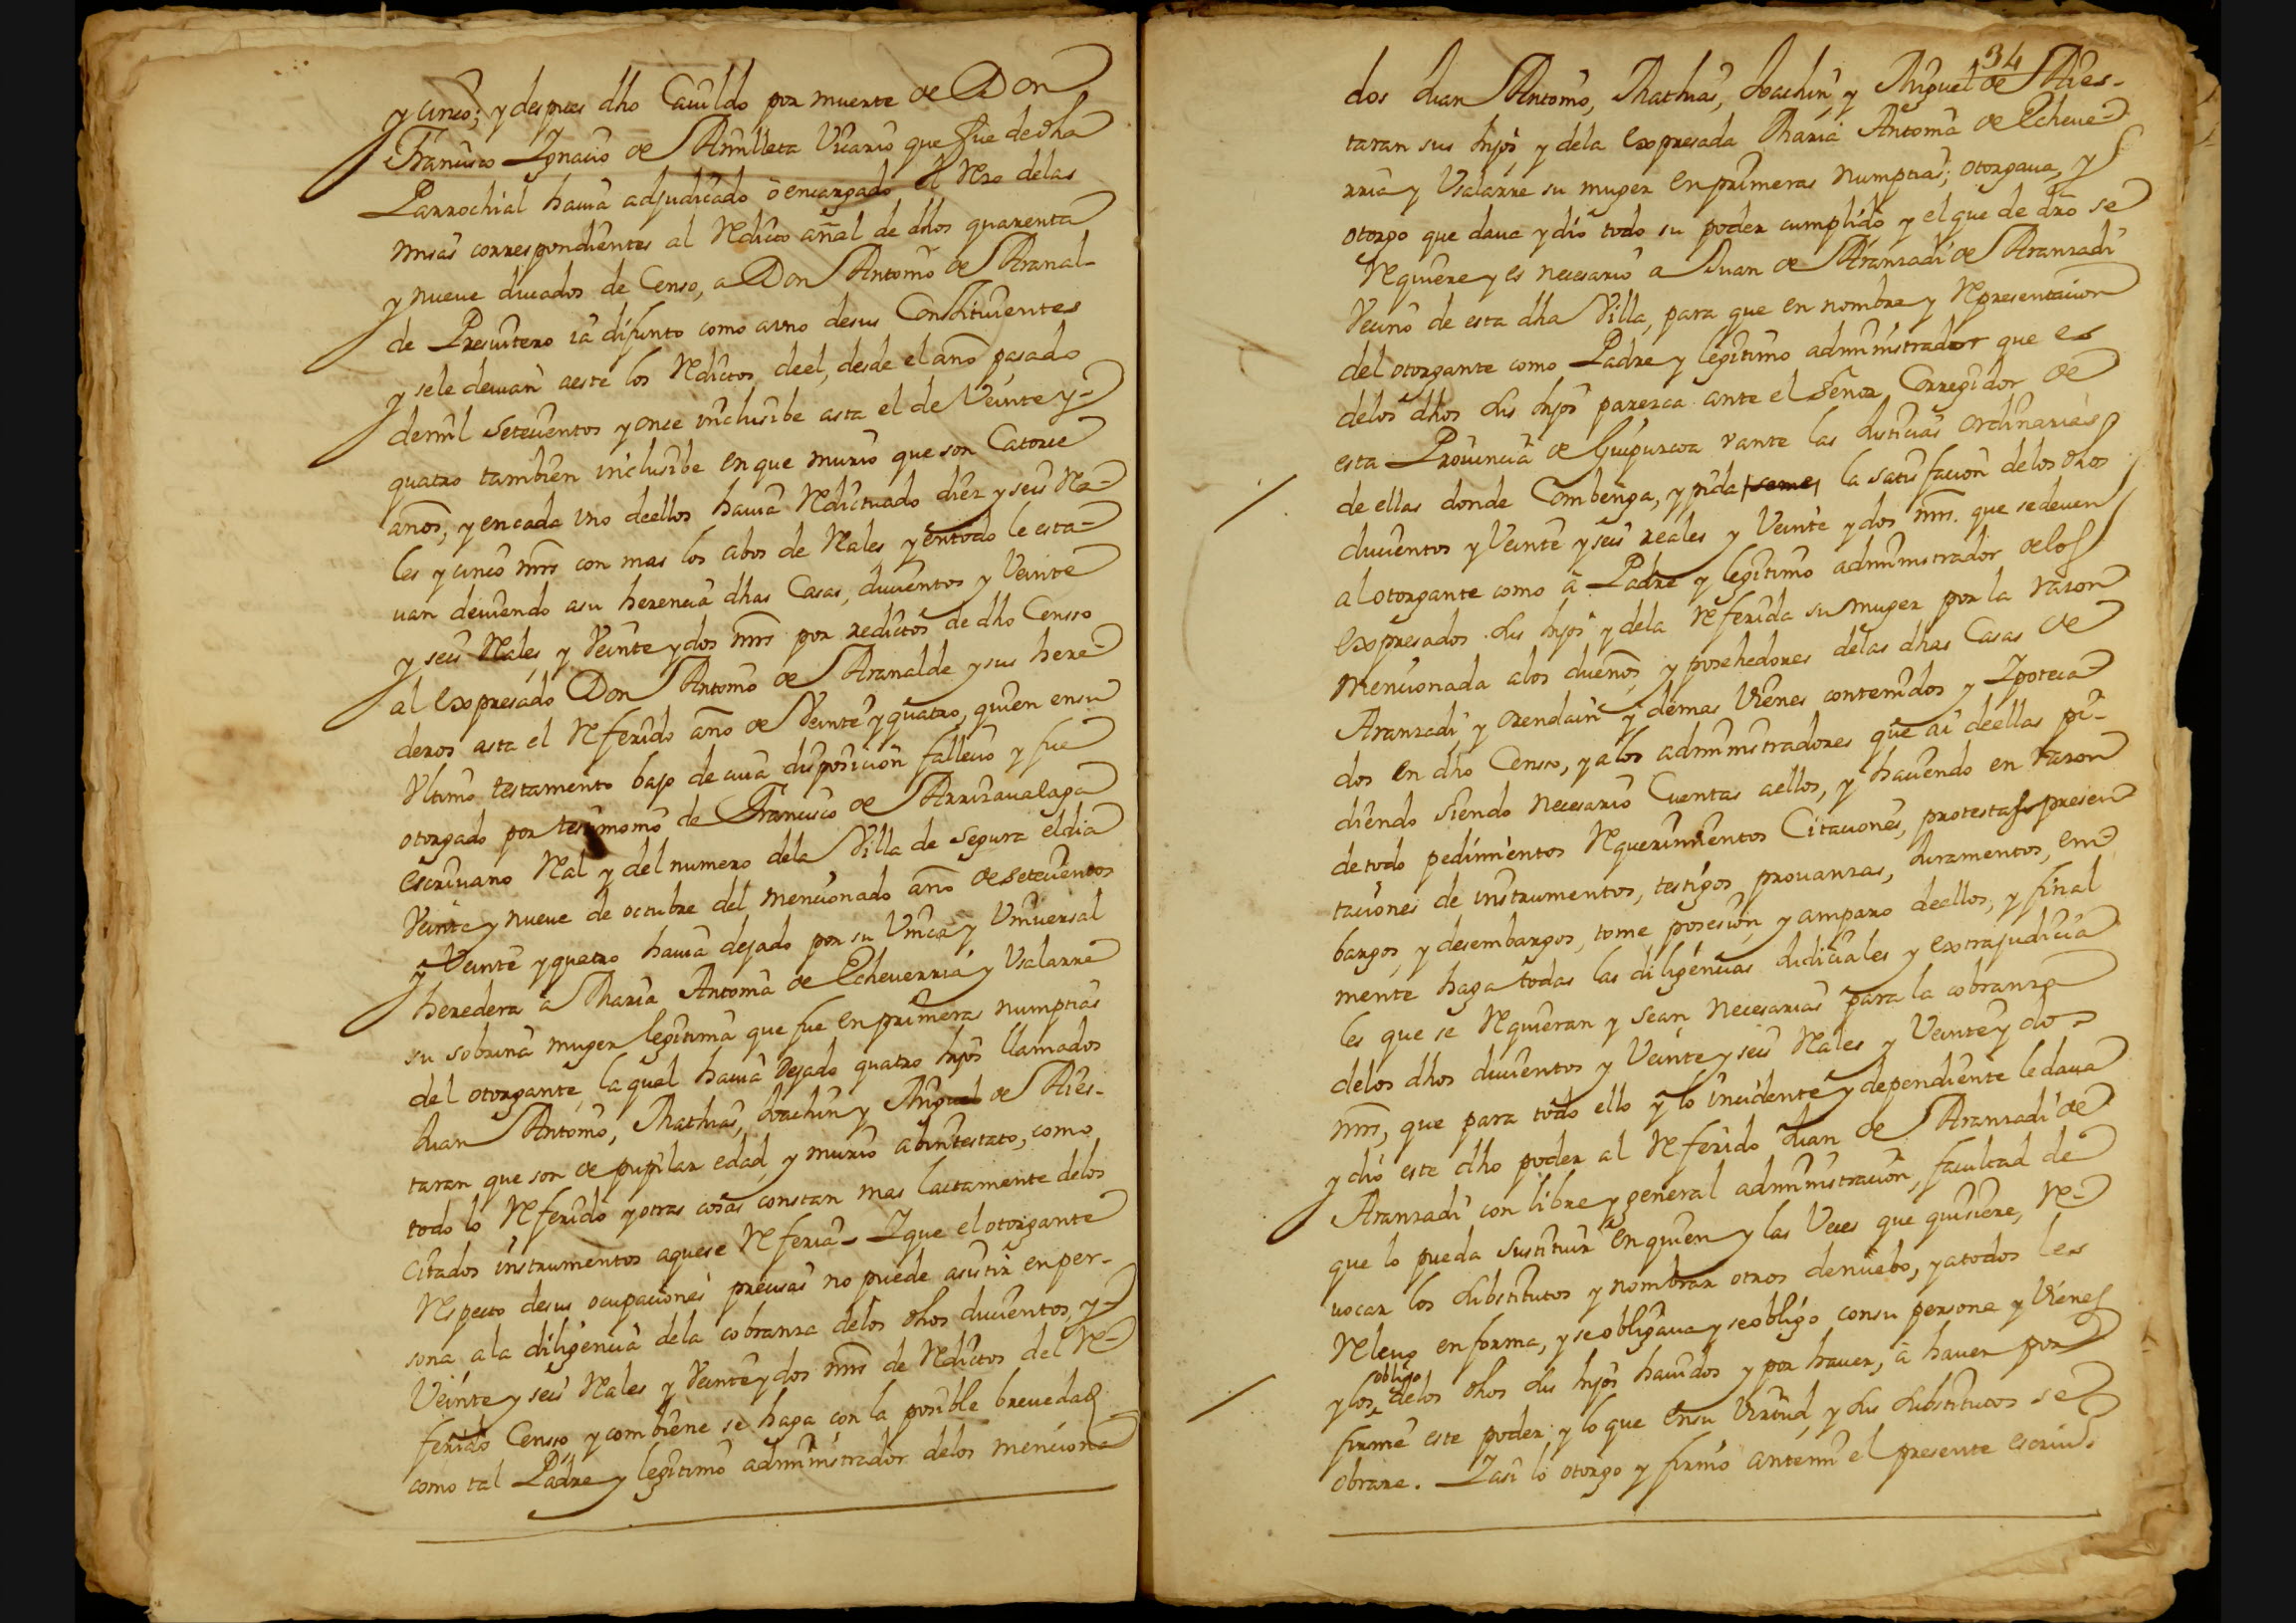 y cinco; y despues dho Cauildo por muerte de Don
Francisco Ignacio de Amilleta Vicario que fue de dha
Parrochial hauia adjudicado o encargado el Rezo delas
misas correspondientes al Redicto añal de dhos quarenta
y nueue ducados de Censo, a Don Antonio de Aranal-
de Presuitero ia difunto como auno desus Constituientes
y sele deuian aeste los Redictos deel, desde el año pasado
demil setecientos y once inclusibe asta el de Veinte y
quatro tambien inclusibe en que murio que son Catorce
años, y encada vno deellos hauia Redictuado diez y seis Rea-
les y cinco mrs con mas los abos de Rales y entodo le esta-
uan deuiendo asu herencia dhas Casas, ducientos y Veinte
y seis Rales y Veinte y dos mrs por redictos de dho Censso
al expresado Don Antonio de Aranalde y sus here-
deros asta el Referido año de Veinte y quatro, quien ensu
Vltimo testamento bajo de cuia disposicion fallecio y fue
otorgado por testimonio de Francisco de Arrizaualaga
escriuano Ral y del numero dela Villa de Segura eldia
Veinte y nueue de octubre del mencionado año de setecientos
y Veinte y quatro hauia dejado por su Vnica y Vniuersal
heredera a Maria Antonia de Echeuerria y Vsalarre
su sobrina muger legitima que fue en primeras numptias
del otorgante, la qual hauia dejado quatro hijos llamados
Juan Antonio, Mathias, Joachin y Miguel de Aies-
taran que son de pupilar edad, y murio abintestato, como
todo lo Referido y otras cosas constan mas lactamente delos
citados instrumentos aquese Referia- Y que el otorgante
Respecto desus ocupaciones precisas no puede asistir en per-
sona ala diligencia dela cobranza delos dhos ducientos, y
Veinte y seis Rales y Veinte y dos mrs de Redictos del Re-
ferido Censso y combiene se haga con la posible breuedad
como tal Padre y legitimo administrador delos menciona
34
dos Juan Antonio, Mathias, Joachin y Miguel de Aies-
taran sus hijos y dela expresada Maria Antonia de Echeue-
rria y Vsalarre su muger en primeras numptias; otorgaua, y
otorgo que daua y dio todo su poder cumplido y el que de dro se
Requiere y es necesario a Juan de Aranzadi de Aranzadi
Vecino de esta dha Villa, para que en nombre y Representacion
del otorgante como Padre y legitimo administrador que es
delos dhos sus hijos parezca ante el señor Corregidor de
esta Prouincia de Guipuzcoa y ante las Justicias ordinarias
de ellas donde Combenga, y pida la satisfacion delos dhos
ducientos y Veinte y seis reales y Veinte y dos mrs. que sedeuen
al otorgante como a Padre y legitimo administrador delos
expresados sus hijos y dela Referida su muger por la razon
mencionada alos dueños y posehedores delas dhas Casas de
Aranzadi y orendain y demas Vienes contenidos y Ipoteca
dos en dho Censso, y alos administradores que ai deellas pi-
diendo siendo necesario Cuentas aellos, y haciendo en razon
detodo pedimientos Requerimientos Citaciones, protestas presen
taciones de instrumentos, testigos prouanzas, Juramentos, em
bargos, y desembargos, tome posesion y amparo deellos, y final
mente haga todas las diligencias Judiciales y extrajudicia
les que se Requieran y sean necesarias para la cobranza
delos dhos ducientos y Veinte y seis Rales y Veinte y dos
mrs, que para todo ello y lo incidente y dependiente ledaua
y dio este dho poder al Referido Juan de Aranzadi de
Aranzadi con libre y general administracion, facultad de
que lo pueda sustituir en quien y las Veces que quisiere, Re-
uocar los substitutos y nombrar otros denuebo, y atodos les
Releuo en forma, y seobligaua y seobligo consu persona y Vienes
obligo
y los delos dhos sus hijos hauidos y por hauer, a hauer por
firme este poder y lo que ensu Virtud y sus substitutos se
obrare. Y asi lo otorgo y firmo antemi el presente escriuo